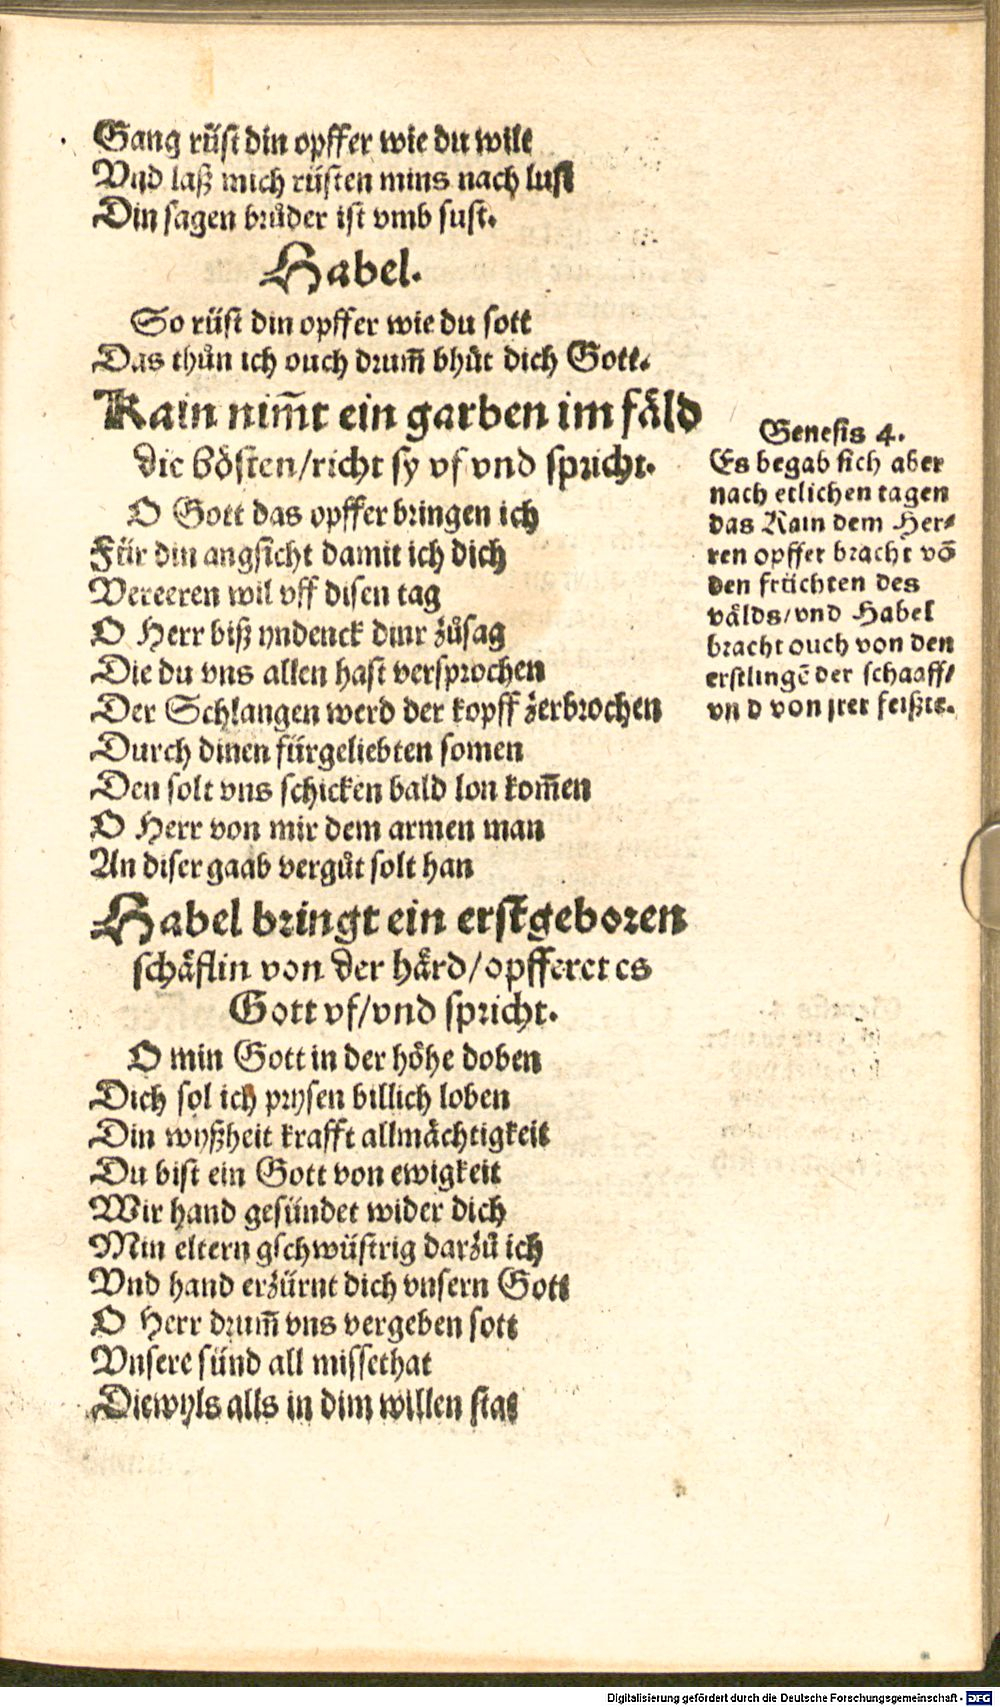 Gang rüst din opffer wie du wilt
Vnd laß mich rüsten mins nach lust
Din sagen brůder ist vmb sust.
Habel.
So rüst din opffer wie du sott
Das thůn ich ouch drum̄ bhüt dich Gott.
Kain nim̄t ein garben im fäld
die bösten/richt sy vf vnd spricht.
O Gott das opffer bringen ich
Für din angsicht damit ich dich
Vereeren wil vff disen tag
O Herr biß yndenck dinr zůsag
Die du vns allen hast versprochen
Der Schlangen werd der kopff zerbrochen
Durch dinen fürgeliebten somen
Den solt vns schicken bald lon kom̄en
O Herr von mir dem armen man
An diser gaab vergůt solt han
Habel bringt ein erstgeboren
schäflin von der härd/opfferet es
Gott vf/vnd spricht.
O min Gott in der höhe doben
Dich sol ich prysen billich loben
Din wyßheit krafft allmächtigkeit
Du bist ein Gott von ewigkeit
Wir hand gesündet wider dich
Min eltern gschwüstrig darzů ich
Vnd hand erzürnt dich vnsern Gott
O Herr drum̄ vns vergeben sott
Vnsere sünd all missethat
Diewyls alls in dim willen stat
Genesis 4.
Es begab sich aber
nach etlichen tagen
das Kain dem Her-
ren opffer bracht võ
den früchten des
välds/vnd Habel
bracht ouch von den
erstlingē der schaaff/
vn d von jrer feißte.
Digitalisierung gefördert durch die Deutsche Forschungsgemeinschaft - DFG